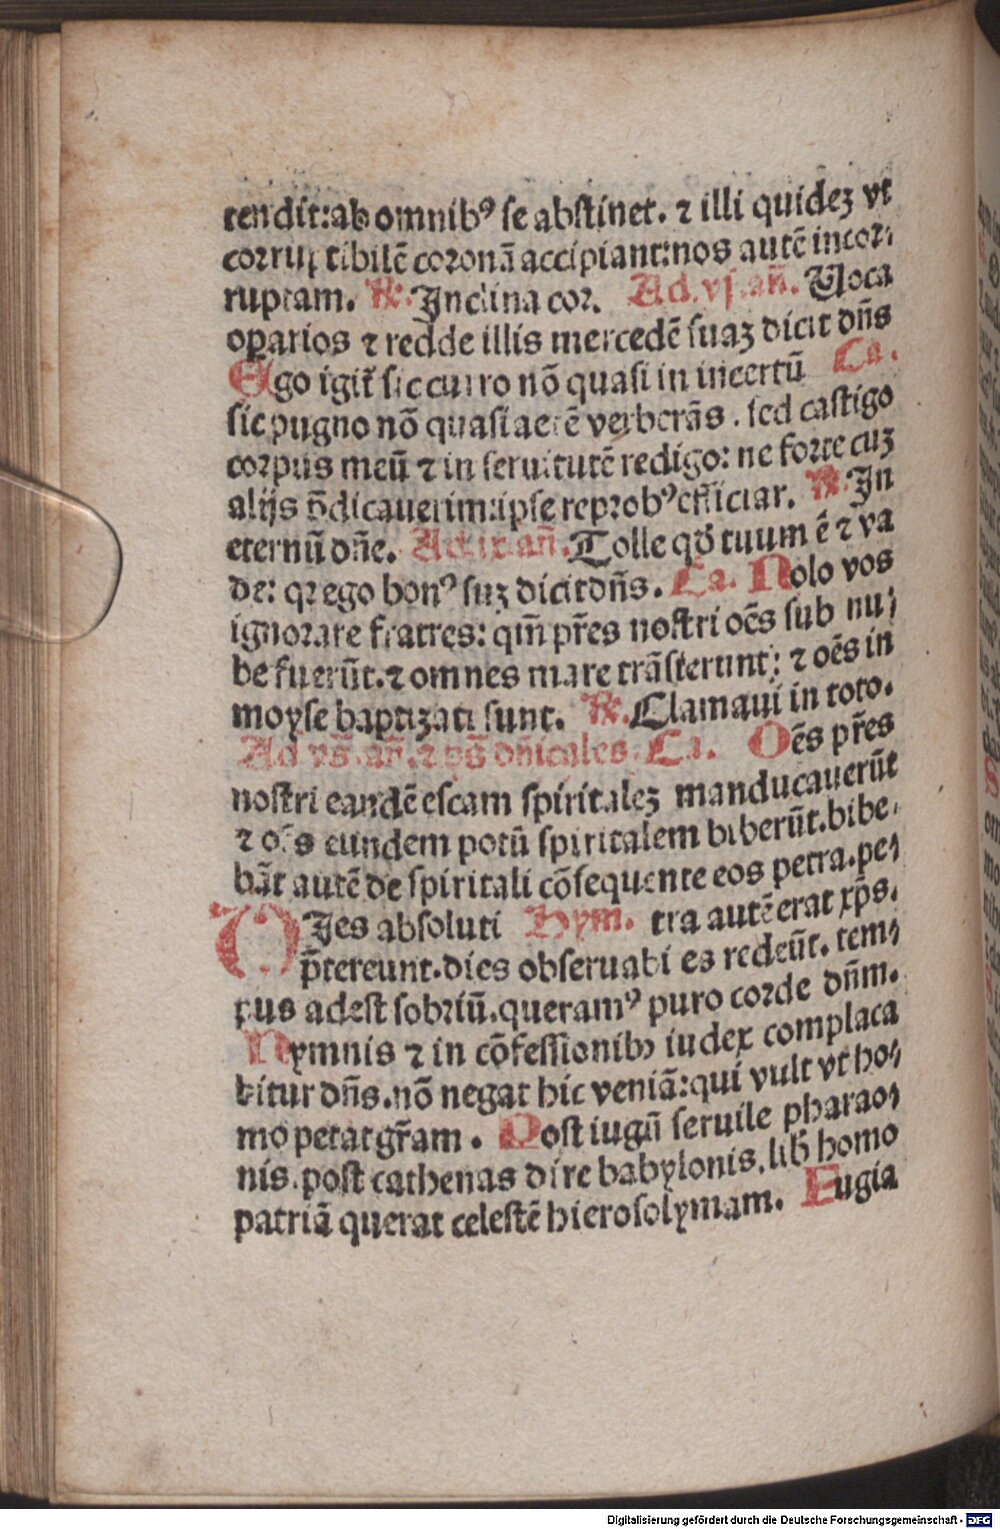 tendit:ab omnibꝰ se abstinet. ⁊ illi quideꝫ vt
corruptibilē coronā accipiant:nos autē incor⸗
ruptam. ℟. Inclina cor. Ad .vj. añ. Uoca
oparios ⁊ redde illis mercedē suaꝫ dicit dñs
Ego igit̃ sic curro nō quasi in incertū Ca.
sic pugno nō quasi aerē verberās . sed castigo
corpus meū ⁊ in seruitutē redigo: ne forte cuꝫ
alijs p̄dicauerim:ipse reprobꝰ efficiar. ℟. In
eternū dñe. Ad ix añ. Tolle qđ tuum ē ⁊ va
de: qꝛ ego bonꝰ suꝫ dicit dñs. Ca. Nolo vos
ignorare fratres: qm̄ pr̄es nostri oēs sub nu⸗
be fuerūt.⁊ omnes mare trāsierunt: ⁊ oēs in
moyse baptizati sunt. ℟. Clamaui in toto.
Ad vs̄. añ. ⁊ ps̄ dñicales. Ca. Oēs pr̄es
nostri eandē escam spiritaleꝫ manducauerūt
⁊ oēs eundem potū spiritalem biberūt.bibe⸗
bāt autē de spiritali cōsequente eos petra.pe⸗
DIes absoluti Hym. tra autē erat xp̄s.
p̄tereunt.dies obseruabi es redeūt. tem⸗
pus adest sobriū.queramꝰ puro corde dñm.
Nymnis ⁊ in cōfessionibꝫ iudex complaca
bitur dñs.nō negat hic veniā:qui vult vt ho⸗
mo petat gr̄am . Post iugū seruile pharao⸗
nis.post cathenas dire babylonis.lib̄ homo
patriā querat celestē hierosolymam. Fugia
Digitalisierung gefördert durch die Deutsche Forschungsgemeinschaft - DFG